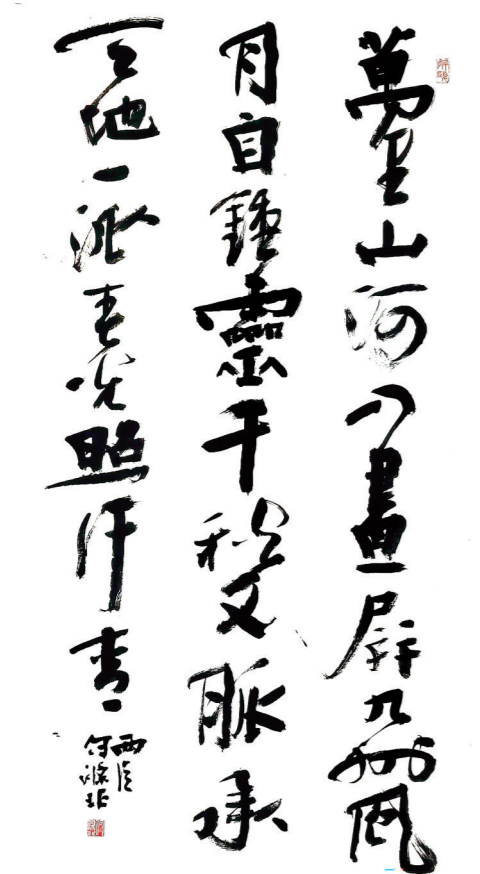 萬里山河入畫屏九州風
月自鍾靈千秋文脈承
天地一派春光照汗青